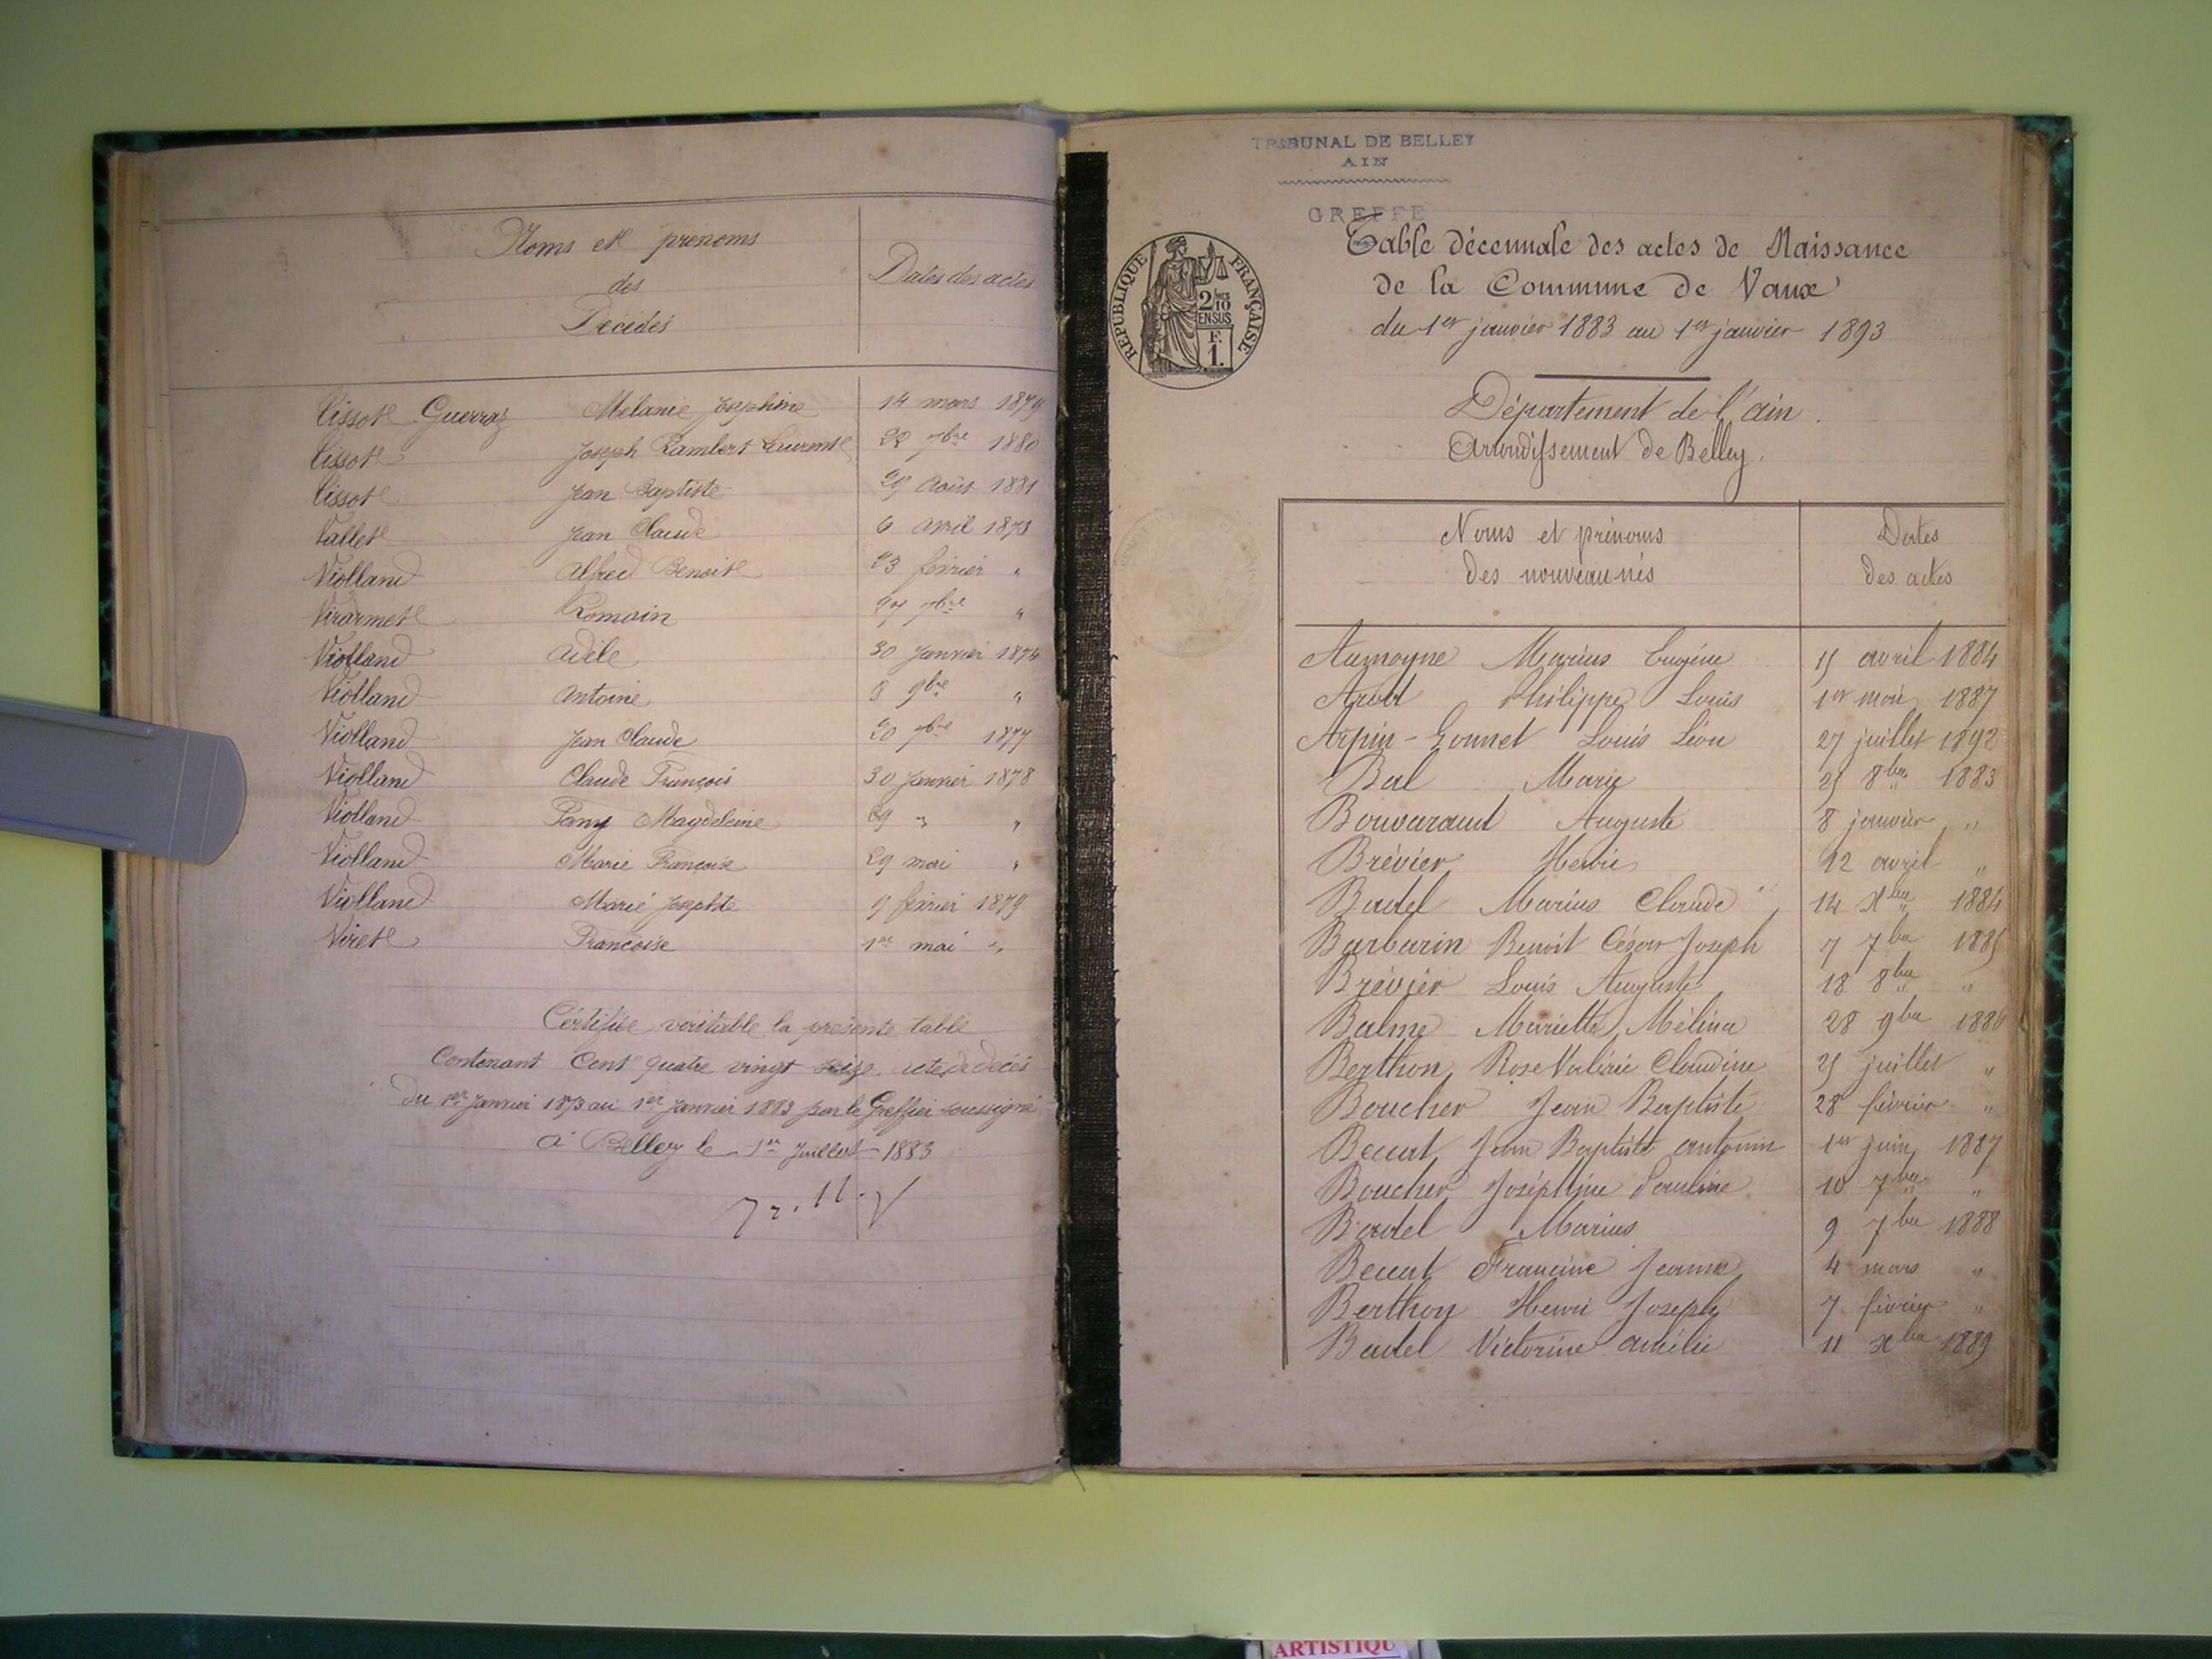 Noms et prénoms
des
Décédés
Dates des actes
Tissot Guerraz Mélanie Josephine 14 mars 1879
Tissot Joseph Lambert Laurent 22 7bre 1880
Tissot Jean Baptiste 29 Août 1881
Vallet Jean Claude 6 avril 1873
Violland Alfred Benoit 23 février "
Virarmet Romain 27 7bre "
Violland Adèle 30 Janvier 1874
Violland Antoine 8 9bre "
Violland Jean Claude 20 7bre 1877
Violland Claude François 30 Janvier 1878
Violland Fany Magdeleine 29 " "
Violland Marie Françoise 29 mai "
Violland Marie Josephte 9 février 1879
Viret Francoise 1er mai "
Certifiée veritable la présente table
Contenant Cent quatre vingt seize actes de décès
du 1er Janvier 1873 au 1er Janvier 1883 par le Greffier soussigné
à Belley le 1er Juillet 1883
TRIBUNAL DE BELLEY
AIN
GREFFE
RÉPUBLIQUE FRANÇAISE
2/10
EN SUS
F.
1.
Table décennale des actes de Naissance
de la Commune de Vaux
du 1er janvier 1883 au 1er janvier 1893
Département de l'ain.
Arrondissement de Belley.
Noms et prénoms Dates
des nouveau-nés des actes
Aumoyne Marius Eugène 15 avril 1884
Philippe Louis 1er mai 1887
Arpin-Gonnet Louis Léon 27 juillet 1892
Bal Marie 25 8bre 1883
Bouvaraud Auguste 8 janvier "
Brévier Henri 12 avril "
Badel Marius Claude 14 Xbre 1884
Barbarin Benoit César Joseph 7 7bre 1885
Brévier Louis Auguste 18 8bre "
Balme Mariette Mélina 28 9bre 1886
Berthon Rose Valérie Claudine 25 juillet "
Boucher Jean Baptiste 28 février "
Beccat Jean Baptiste antonin 1er juin 1887
Boucher Joséphine Pauline 10 7bre "
Badel Marius 9 7bre 1888
Beccat Francine Jeanne 4 mars "
Berthon Henri Joseph 7 février "
Badel Victorine amélie 11 xbre 1889
ARTISTIQU